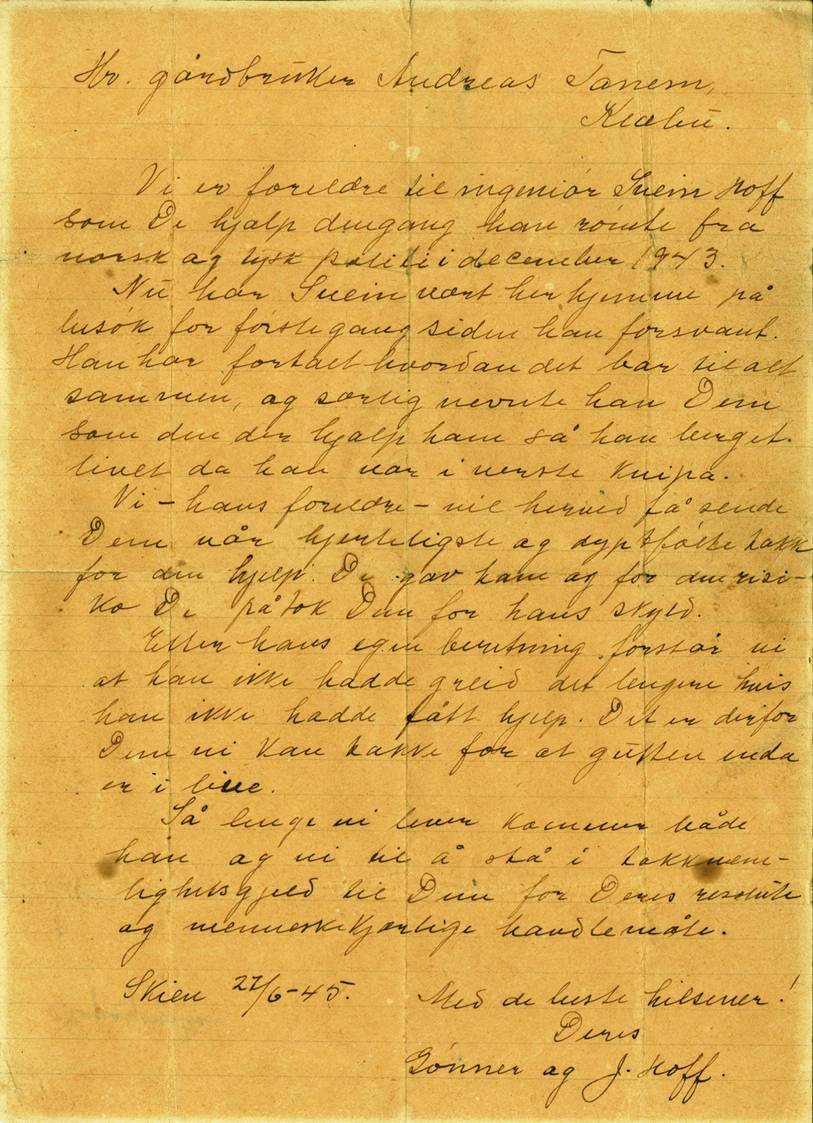 Hr. gårdbruker Andreas Tanem,
Klæbu.
Vi er foreldre til ingeniör Svein Hoff
som De hjalp dengang han römte fra
norsk og tysk politi i december 1943.
Nu har Svein vært her hjemme på
besök for förste gang siden han forsvant.
Han har fortalt hvordan det bar til alt
sammen, og særlig nevnte han Dem
som den der hjalp ham så han berget
livet da han var i verste knipa.
Vi – hans foreldre – vil herved få sende
Dem vår hjerteligste og dyptfölte takk
for den hjelp De gav ham og for den risi-
ko De påtok Dem for hans skyld.
Etter hans egen beretning forstår vi
at han ikke hadde greid det lengere hvis
han ikke hadde fått hjelp. Det er derfor
Dem vi kan takke for at gutten enda
er i live.
Så lenge vi lever kommer både
han og vi til å stå i takknem-
lighetsgjeld til Dem for Deres resolute
og menneskekjærlige handlemåte.
Skien 27/6-45. Med de beste hilsener!
Deres
Gönner og J. Hoff.